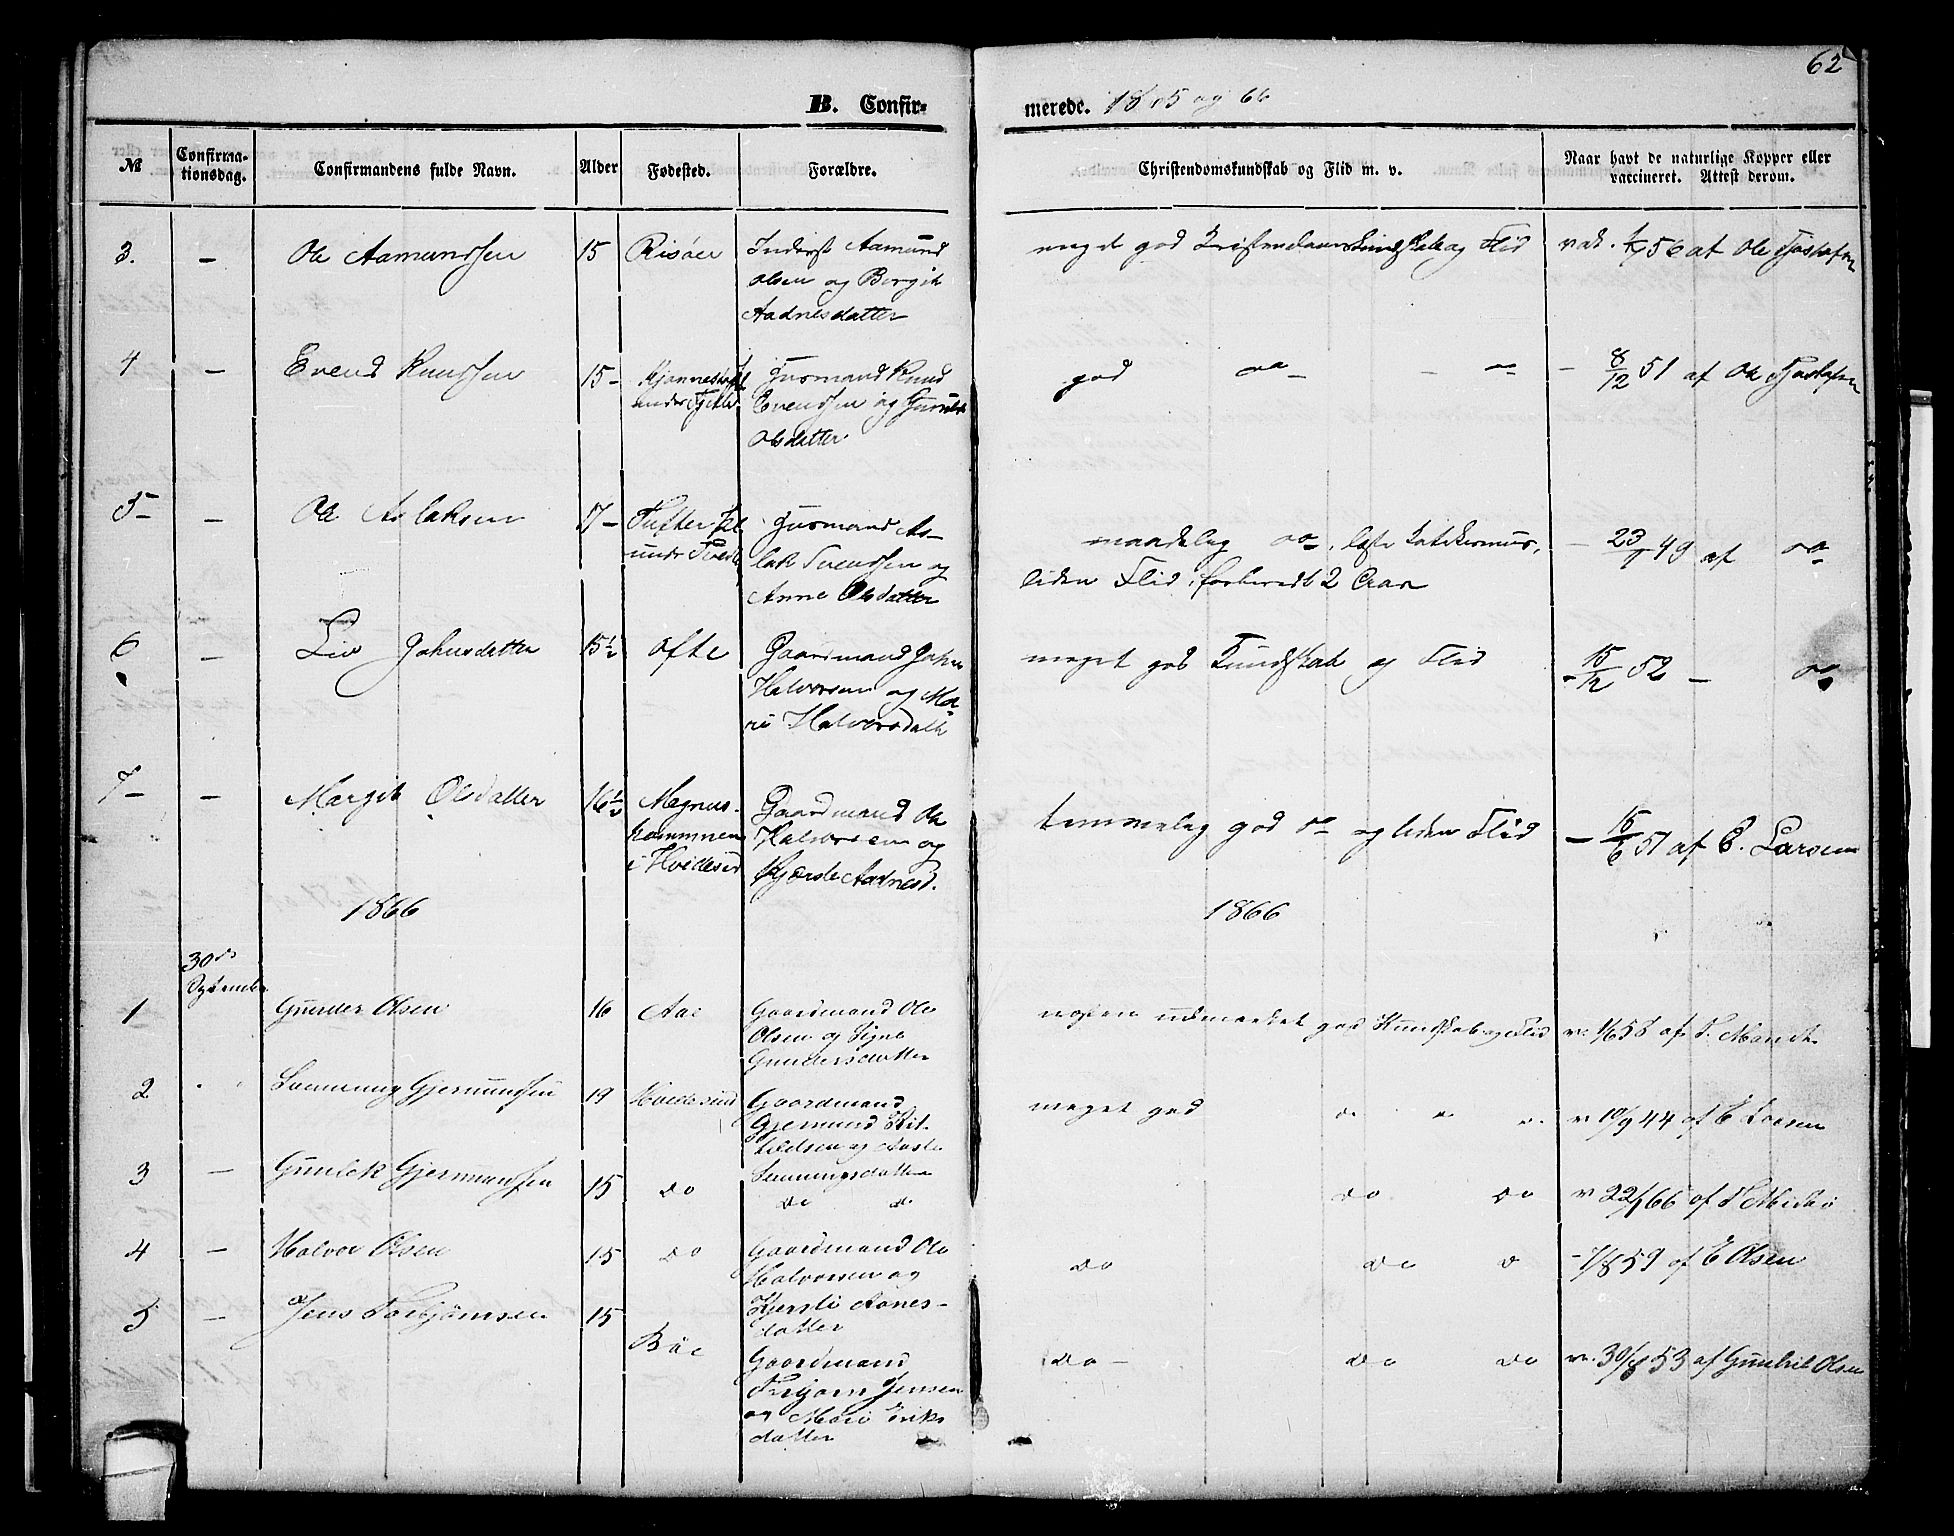 62
B. Confirmerede. 1865 og 66
№
Confirmationsdag.
Confirmandens fulde Navn.
Alder
Fødested.
Forældre.
Christendomskundskab og Flid m. v.
Naar havt de naturlige Kopper eller
vaccineret. Attest derom.
3. — Ole Aamundsen 15 Risøen
Inderst Aamund
Olsen og Bergit
Aadnesdatter
meget god Kristendomskundskab og Flid
56 af Ole
4 — Evend Knudsen 15 —
Husmand Knud
Evendsen og Gunild
Olsdatter
god do — — do
— 8/12 51 af Ole
5 — — Ole Aslaksen 17 —
Husmand As-
lak Svendsen og
Anne Olsdatter
maadelig do, læste Katekismus,
liden Flid, forberedt 2 Aar
— 23/7 49 af do
6 — Liv Johnsdatter 15½ Ofte
Gaardmand John
Halvorsen og Ma-
ri Halvorsdatter
meget god Kundskab og Flid
— 15/12 52 — do
7 — — Margit Olsdatter 16½
Magnus-
kammen
i Hvideseid
Gaardmand Ole
Halvorsen og
Kjersti Aadnesd.
temmelig god do og liden Flid
— 15/6 51 af E. Larsen
1866
1866
30te
September
1 Gunder Olsen 16 Aae
Gaardmand Ole
Olsen og Signe
Gundersdatter
næsten udmærket god Kundskab og Flid
af T. Mandt.
2 Lemming Gjermundsen 19 Hvideseid
Gaardmand
Gjermund Kit-
tildsen og Aaste
Lemmingsdatter
meget god do do
v 10/9 44 af E Larsen
3 — Gunlek Gjermundsen 15 do
do do
do do
v 22/1 66 af
4 — Halvor Olsen 15 do
Gaardmand Ole
Halvorsen og
Kjersti Aanes-
datter
do do do
59 af E Olsen
5 — Jens Torbjørnsen 15 Bøe
Gaardmand
Torbjørn Jensen
og Mari Eriks
datter
do — do do
v. 30/8 53 af Gunhild Olsen